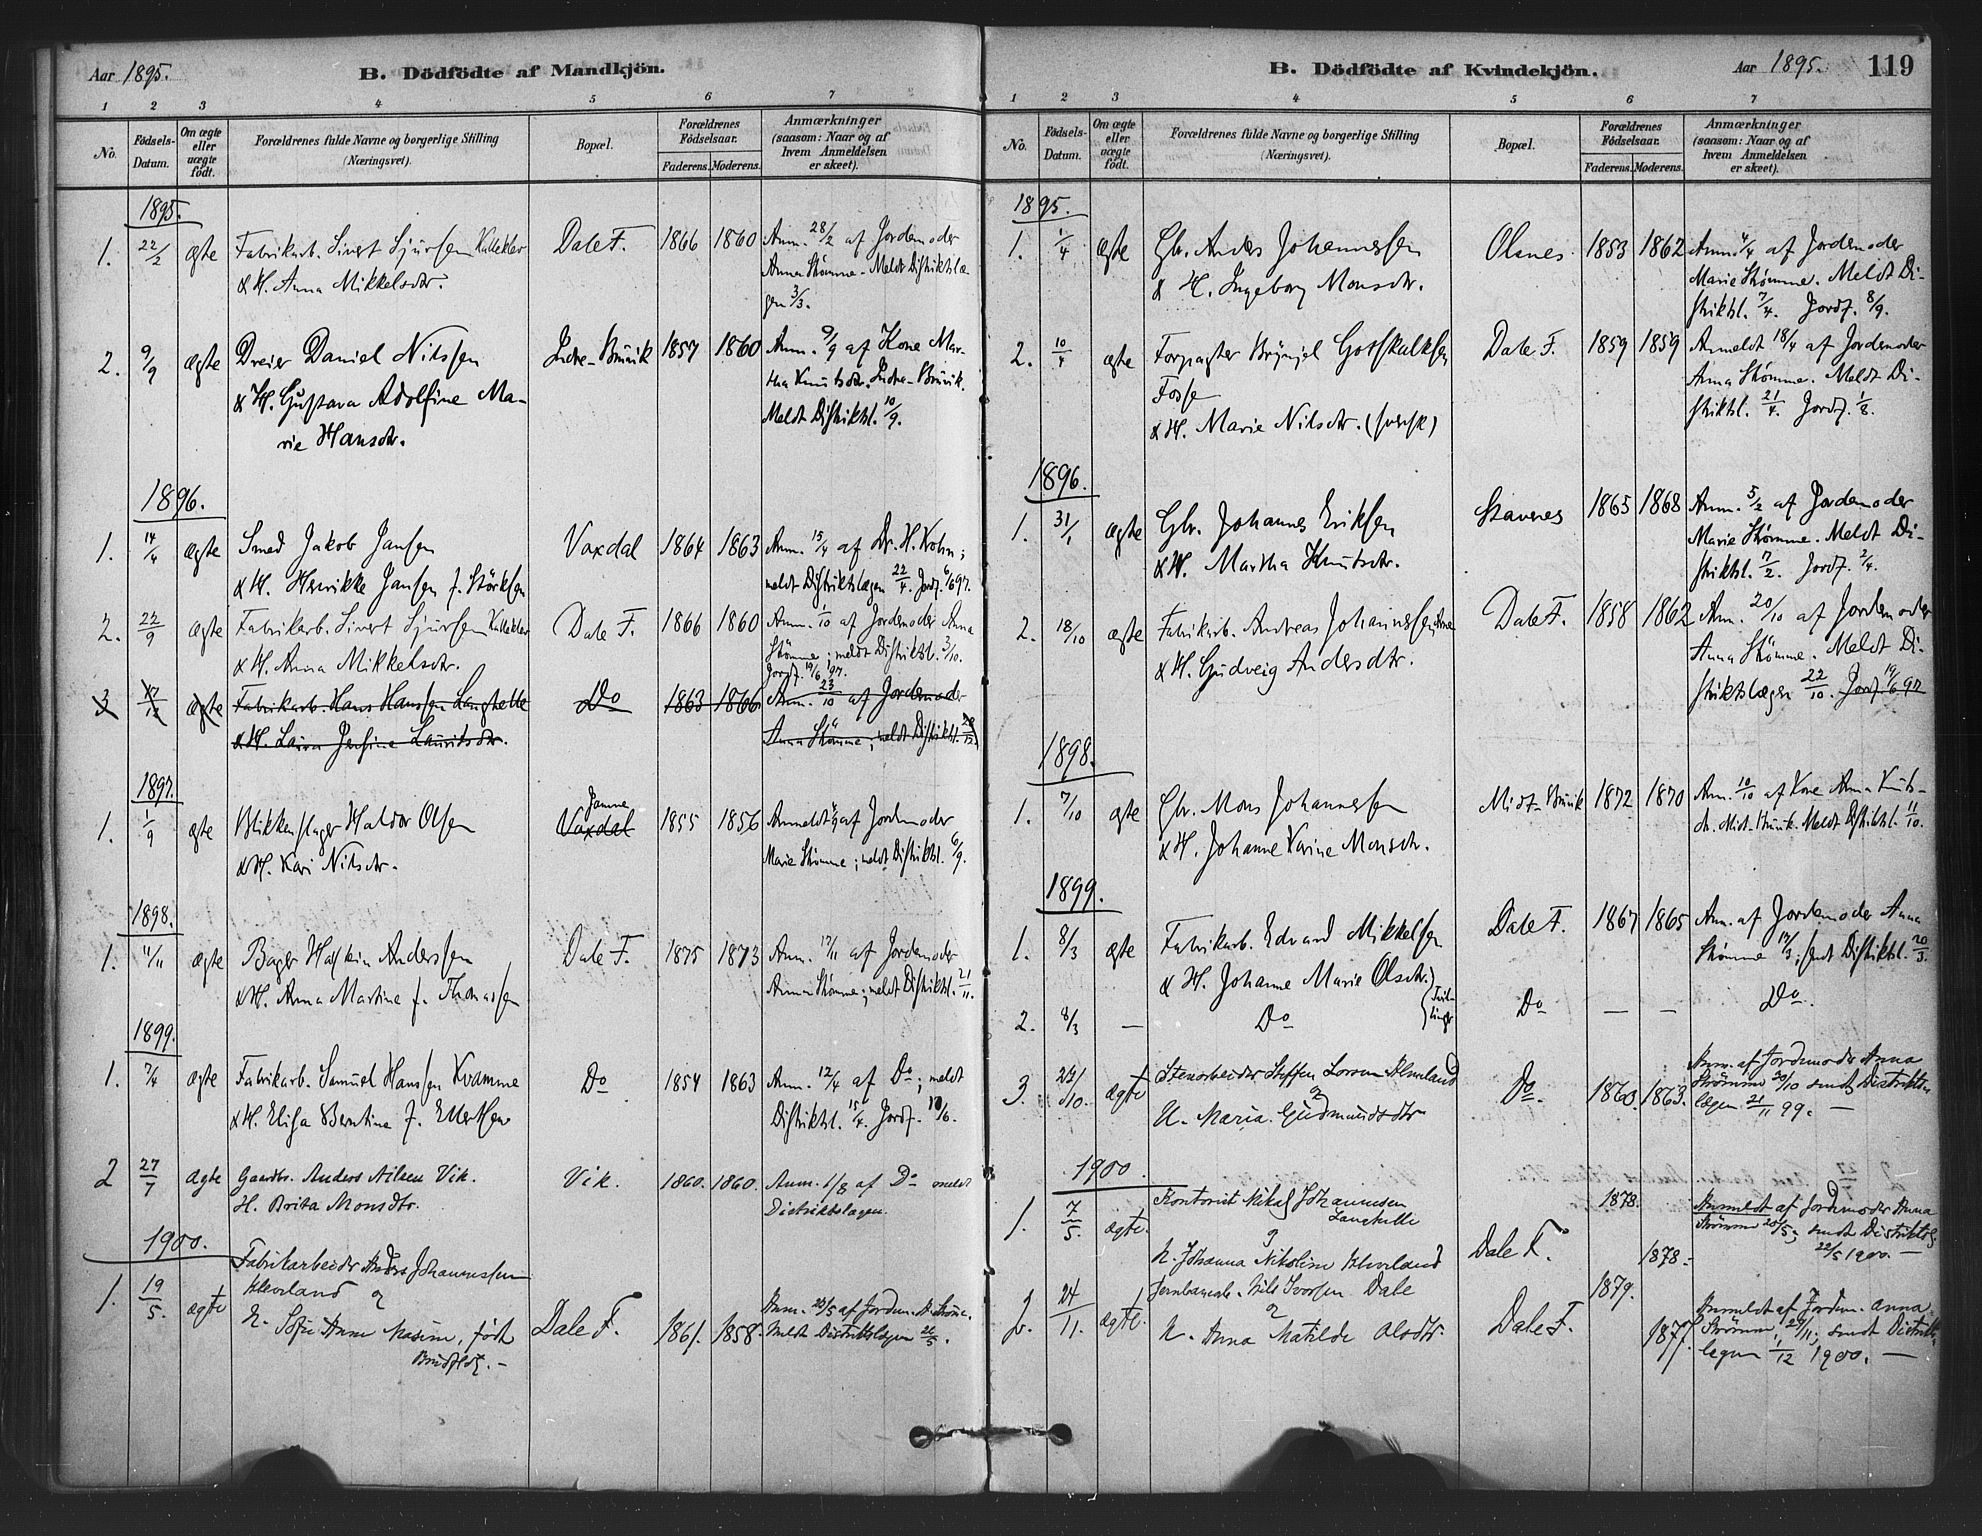 Aar 1895.
B. Dödfödte af Mandkjön.
1 2 3 4 5 6 7
No.
Födsels-
Datum.
Om ægte
eller
uægte
født.
Forældrenes fulde Navne og borgerlige Stilling
(Næringsvei).
Bopæl.
Forældrenes
Födselsaar.
Faderens. Moderens.
Anmærkninger
(saasom: Naar og af
hvem Anmeldelsen
er skeet).
1895.
1. 22/2 ægte Fabrikarb. Sivert Sjursen Kalleklev Dale F. 1866 1860 Anm. 28/2 af Jordemoder
& H. Anna Mikkelsdtr. Anna Strømme - Meldt Distriktslæ-
gen 3/3.
2. 9/9 ægte Dreier Daniel Nilssen Indre-Bruvik 1857 1860 Anm. 9/9 af Kone Mar-
& H. Gustava Adolfine Ma- tha Knutsdtr. Indre-Bruvik.
rie Hansdtr. Meldt Distriktsl. 10/9.
1896.
1. 14/4 ægte Smed Jakob Jansen Vaxdal 1864 1863 Anm. 15/4 af Dr. H. Krohn;
& H. Henrikke Jansen f. Störksen meldt Distriktslægen 22/4. Jordf. 6/6 97.
2. 22/9 ægte Fabrikarb. Sivert Sjursen Kalleklev Dale F. 1866 1860 Anm. 1/10 af Jordemoder Anna
& H. Anna Mikkelsdtr. Strømme; meldt Distriktsl. 3/10.
Jordf. 19/6 97.
3 17/12 ægte Fabrikarb. Hans Hanssen Langhelle Do 1863 1866 Anm. 23/10 af Jordemoder
& H. Laura Jensine Lauritsdtr. Anna Strømme; meldt Distriktsl.
1897.
1. 1/9 ægte Blikkenslager Haldor Olsen Vaxdal Jamne 1855 1856 Anmeldt af Jordemoder
& H. Kari Nilsdtr. Marie Strømme; meldt Distriktsl. 6/9.
1898.
1. 11/11 ægte Bager Anderssen Dale F. 1875 1873 Anm. 17/11 af Jordemoder
& H. Anna Martine f. Thomassen Anna Strømme; meldt Distriktsl. 21/11.
1899.
1. 7/4 ægte Fabrikarb. Samuel Hanssen Kvamme Do 1854 1863 Anm. 12/4 af Do; meldt
& H. Elisa Berntine f. Ellertsen Distriktsl. 15/4. Jordf.
2 27/7 Ægte Gaardbr. Anders Nilsen Vik. Vik. 1860. 1860. Anm. 1/8 af Do meldt
H. Brita Monsdtr. Distriktslægen.
1900.
1. 19/5. ægte Fabrikarbeider Anders Johannessen
Kleveland og
H. Sofie Anne Maxime, født Dale F. 1861. 1858. Anm. af Jordem. A. Strømme.
Meldt Distriktslægen 26/5.
Aar 1895. 119
B. Dödfödte af Kvindekjön.
1 2 3 4 5 6 7
No.
Födsels-
Datum.
Om ægte
eller
uægte
födt.
Forældrenes fulde Navne og borgerlige Stilling
(Næringsvei).
Bopæl.
Forældrenes
Födselsaar.
Faderens. Moderens.
Anmærkninger
(saasom: Naar og af
hvem Anmeldelsen
er skeet).
1895.
1. 1/4 ægte Gbr. Anders Johannessen Olsnes 1853 1862 Anm. 4/4 af Jordemoder
& H. Ingeborg Monsdtr. Marie Strømme. Meldt Di-
striktsl. 7/4. Jordf. 8/9.
2. 10/4 ægte Forpagter Brynjel Gotskalksen Dale F. 1859 1859 Anmeldt 18/4 af Jordemoder
Fosse Anna Strømme. Meldt Di-
& H. Marie Nilsdtr. (svensk) striktsl. 21/4. Jordf. 1/8.
1896.
1. 31/1 ægte Gbr. Johannes Eriksen Stavenes 1865 1868 Anm. 5/2 af Jordemoder
& H. Martha Knutsdtr. Marie Strømme. Meldt Di-
striktsl. 7/2. Jordf. 2/4.
2. 18/10 ægte Fabrikarb. Andreas Johannessen Dale F. 1858 1862 Anm. 20/10 af Jordemoder
& H. Gudveig Andersdtr. Anna Strømme. Meldt Di-
striktslægen 22/10. Jordf. 19/6 97
1898.
1. 7/10 ægte Gbr. Mons Johannessen Midt-Bruvik 1872 1870 Anm. 10/10 af Kone Anna Knuts-
& H. Johanne Karine Monsdtr. dtr. Midt-Bruvik. Meldt Distriktsl. 11/10.
1899.
1. 8/3 ægte Fabrikarb. Edvard Mikkelsen Dale F. 1867 1865 Anm. af Jordemoder Anna
& H. Johanne Marie Olsdtr. Strømme 17/3; sendt Distriktsl. 20/3.
2. 8/3 — Do (Tvil-
linger Do — — Do.
3. 22/10. ægte Stenarbeider Steffen Kleveland
og
H. Maria Gudmundsdtr Do. 1860. 1863. Anm. af Jordemoder Anna
Strømme 30/10 sendt Distrikts
lægen 21/11 99. —
1900
1. 7/5. ægte. Kontorist Nikal Johannessen
Langhelle
og
H. Johanna Nikoline Kleveland Dale F. 1878. 1878. Anmeldt af Jordemoder Anna
Strømme 20/5; sendt Distriktsl.
22/5 1900. —
2. 24/11. ægte. Jernbanearb. Nils Ivarsen Dale
og
H. Anna Matilde Olsdtr. Dale F. 1879. 1877. Anmeldt af Jordem. Anna
Strømme 29/11; sendt Distrikts-
lægen 1/12 1900. —